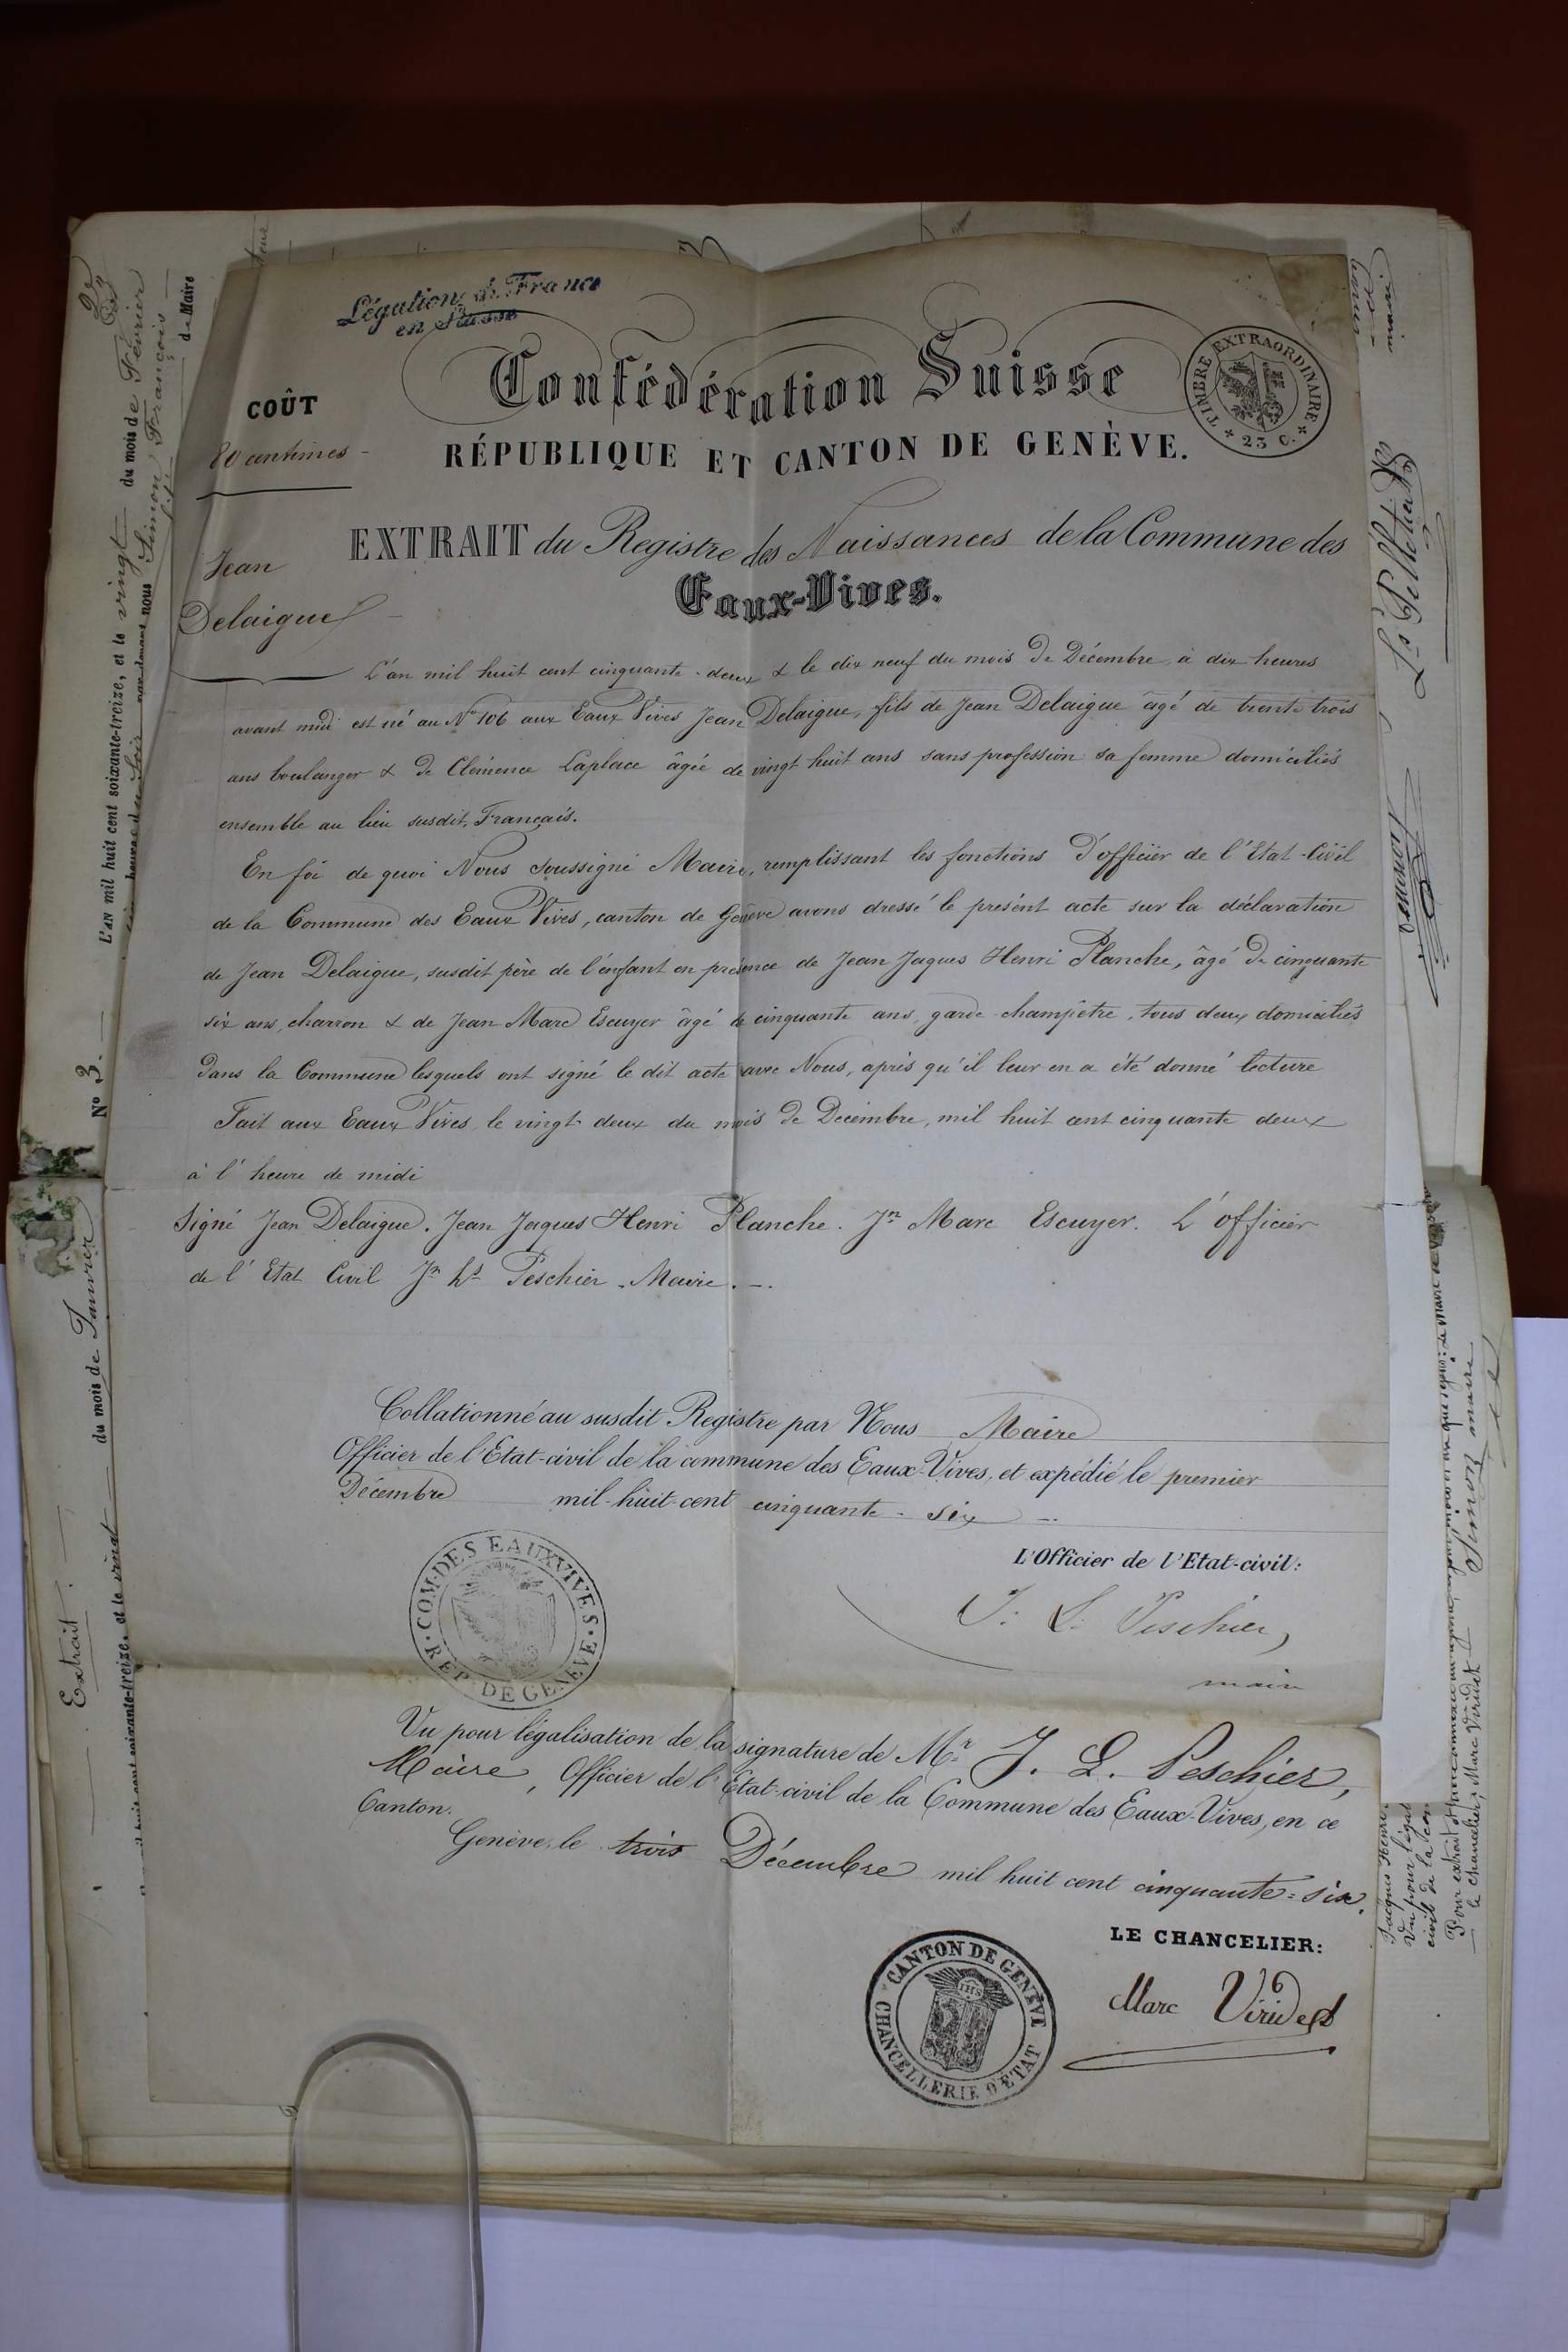 Légation de France
en Suisse
Confédération Suisse
TIMBRE EXTRAORDINAIRE
* 25 C. *
COÛT
80 centimes -
RÉPUBLIQUE ET CANTON DE GENÈVE.
EXTRAIT du Registre des Naissances de la Commune des
Eaux-Vives.
Jean
Delaigue
L'an mil huit cent cinquante-deux & le dix neuf du mois de Décembre, à dix heures
avant midi est né au No 106 aux Eaux Vives Jean Delaigue, fils de Jean Delaigue âgé de trente trois
ans boulanger & de Clémence Laplace âgée de vingt huit ans sans profession sa femme domiciliés
ensemble au lieu susdit, Français.
En foi de quoi Nous soussigné Maire, remplissant les fonctions d'officier de l'Etat-Civil
de la Commune des Eaux Vives, canton de Genève avons dressé le présent acte sur la déclaration
de Jean Delaigue, susdit père de l'enfant en présence de Jean Jaques Henri Planche, âgé de cinquante
six ans, charron & de Jean Marc Escuyer âgé de cinquante ans, garde-champêtre, tous deux domiciliés
dans la Commune lesquels ont signé le dit acte avec Nous, après qu'il leur en a été donné lecture
Fait aux Eaux Vives, le vingt deux du mois de Décembre, mil huit cent cinquante deux
à l'heure de midi
Signé Jean Delaigue. Jean Jaques Henri Planche. Jn Marc Escuyer. L'officier
de l'Etat Civil Jn Ls Peschier. Maire. -.
Collationné au susdit Registre par Nous Maire
Officier de l'Etat-civil de la commune des Eaux-Vives, et expédié le premier
Décembre mil-huit-cent cinquante-six -
L'Officier de l'Etat-civil:
J. L. Peschier,
maire
COM. DES EAUX VIVES
RÉP. DE GENÈVE
Vu pour légalisation de la signature de Mr. J. L. Peschier,
Maire, Officier de l'Etat-civil de la Commune des Eaux-Vives, en ce
Canton.
Genève, le trois Décembre mil huit cent cinquante=six.
LE CHANCELIER:
Marc Viridet
CANTON DE GENÈVE
CHANCELLERIE D'ÉTAT
IHS
No 3.
L'AN mil huit cent soixante-treize, et le vingt du mois de Février
par-devant nous Simon François
de Maire
Extrait.
du mois de Janvier
soixante-treize, et le vingt
Simon maire
Jacques Henri
Vu pour légal
civil de la Com
le chancelier, Marc Viridet